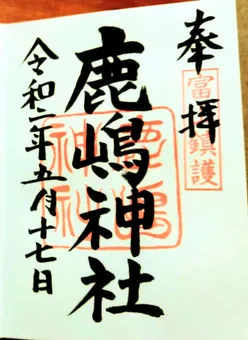 奉拝
富鎮護
鹿嶋神社
鹿嶋
神社
令和二年五月十七日